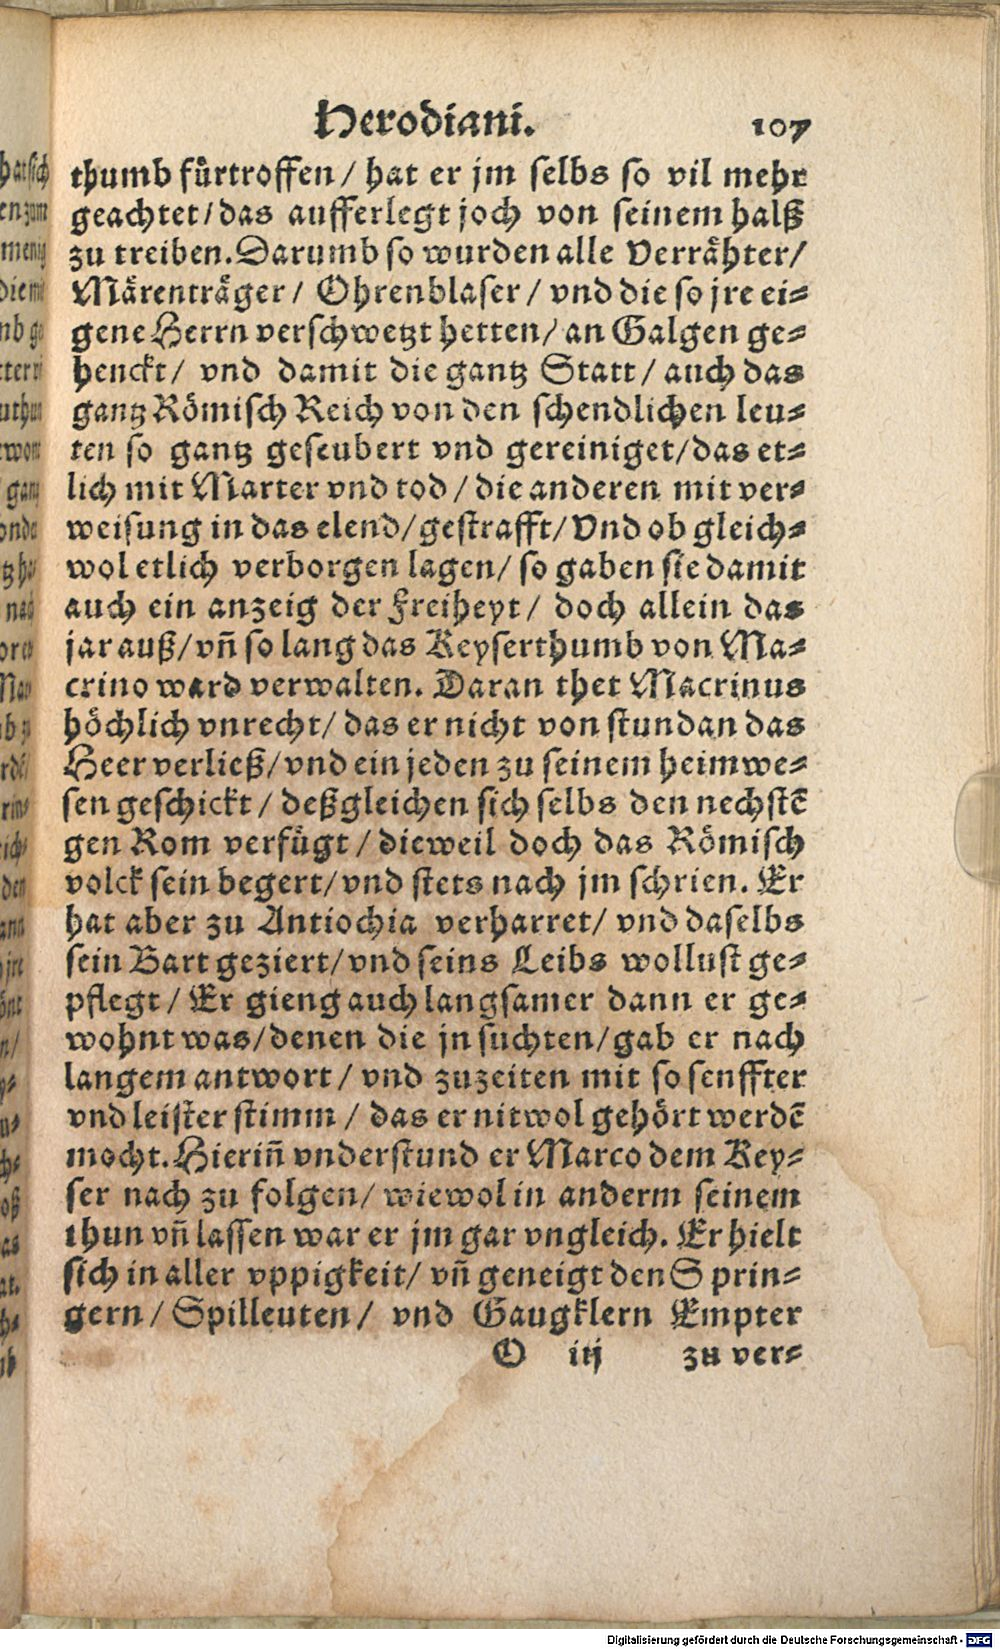 Herodiani. 107
thumb fürtroffen / hat er jm selbs so vil mehr
geachtet / das aufferlegt joch von seinem halß
zu treiben. Darumb so wurden alle Verrähter /
Märenträger / Ohrenblaser / vnd die so jre ei⸗
gene Herrn verschwetzt hetten / an Galgen ge⸗
henckt / vnd damit die gantz Statt / auch das
gantz Römisch Reich von den schendlichen leu⸗
ten so gantz geseubert vnd gereiniget / das et⸗
lich mit Marter vnd tod / die anderen mit ver⸗
weisung in das elend / gestrafft / Vnd ob gleich⸗
wol etlich verborgen lagen / so gaben sie damit
auch ein anzeig der Freiheyt / doch allein das
jar auß / vn̄ so lang das Keyserthumb von Ma⸗
crino ward verwalten. Daran thet Macrinus
höchlich vnrecht / das er nicht von stundan das
Heer verließ / vnd ein jeden zu seinem heimwe⸗
sen geschickt / deßgleichen sich selbs den nechstē
gen Rom verfügt / dieweil doch das Römisch
volck sein begert / vnd stets nach jm schrien. Er
hat aber zu Antiochia verharret / vnd daselbs
sein Bart geziert / vnd seins Leibs wollust ge⸗
pflegt / Er gieng auch langsamer dann er ge⸗
wohnt was / denen die jn suchten / gab er nach
langem antwort / vnd zuzeiten mit so senffter
vnd leister stimm / das er nit wol gehört werdē
mocht. Hierin̄ vnderstund er Marco dem Key⸗
ser nach zu folgen / wiewol in anderm seinem
thun vn̄ lassen war er jm gar vngleich. Er hielt
sich in aller vppigkeit / vn̄ geneigt den Sprin⸗
gern / Spilleuten / vnd Gaugklern Empter
O iij zu ver⸗
Digitalisierung gefördert durch die Deutsche Forschungsgemeinschaft - DFG